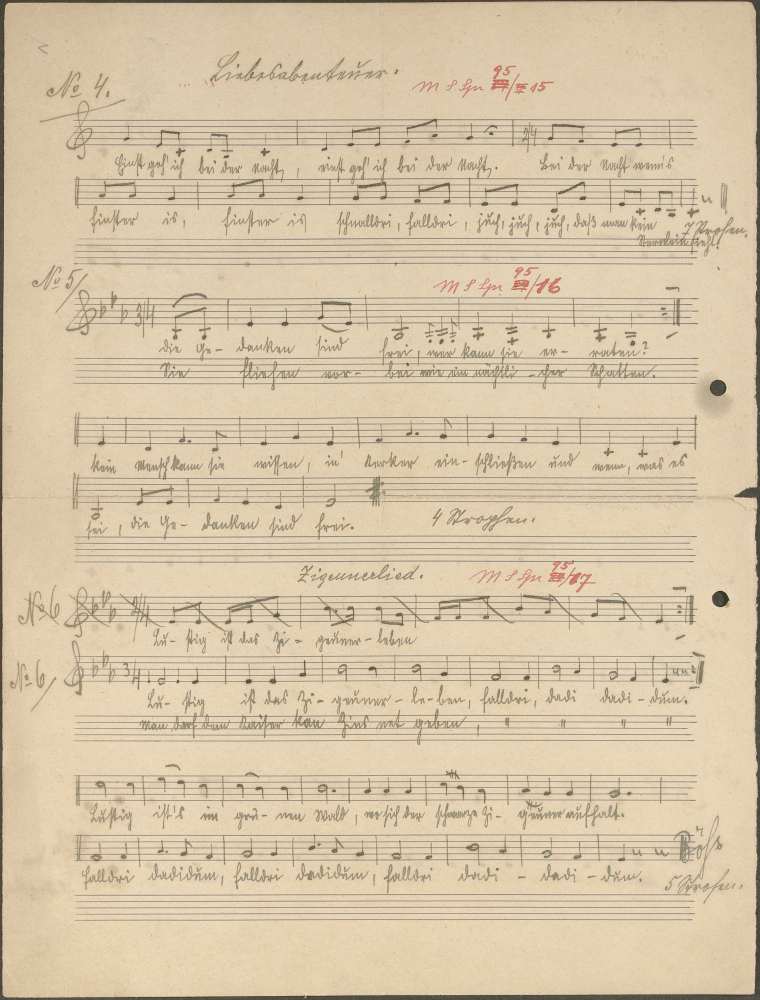 Liebesabenteuer.
No 4.
M S Spr 95/15
Einst geh' ich bei der Nacht, einst geh' ich bei der Nacht. Bei der Nacht wenn's
finster is, finster is schnalldri, falldri, juch, juch, juch, daß man kein
Sternlein sieht. 7 Strofen.
No 5
M S Spr 95/16
3/4
die Ge- danken sind frei, wer kann sie er- raten?
Sie fliehen vor- bei wie im nächtli-cher Schatten.
Kein Mensch kann sie wissen, in' Kerker ein- schließen und wenn, was es
sei, die Ge- danken sind frei. 4 Strophen.
Zigeunerlied.
M S Spr 95/17
No 6
2/4
Lu- stig ist das Zi- geuner- leben
No 6
3/4
Lu- stig ist das Zi- geuner- le- ben, falldri, dadi dadi- dum.
Man darf dem Kaiser kan Zins net geben, " " " "
Lustig ist's im grü- nen Wald, wo sich der schwarze Zi- geuner aufhalt.
falldri dadidum, falldri dadidum, falldri dadi - dadi - dum.
5 Strofen.